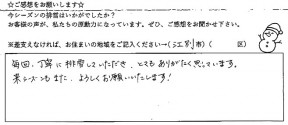 ☆ご感想をお願いします☆
今シーズンの排雪はいかがでしたか?
お客様の声が、私たちの原動力になっています。ぜひ、ご感想をお聞かせ下さい。
※差支えなければ、お住まいの地域をご記入ください→(江別市)( 区)
毎回、丁寧に排雪していただき、とてもありがたく思っています。
来シーズンもまた、よろしくお願いいたします!